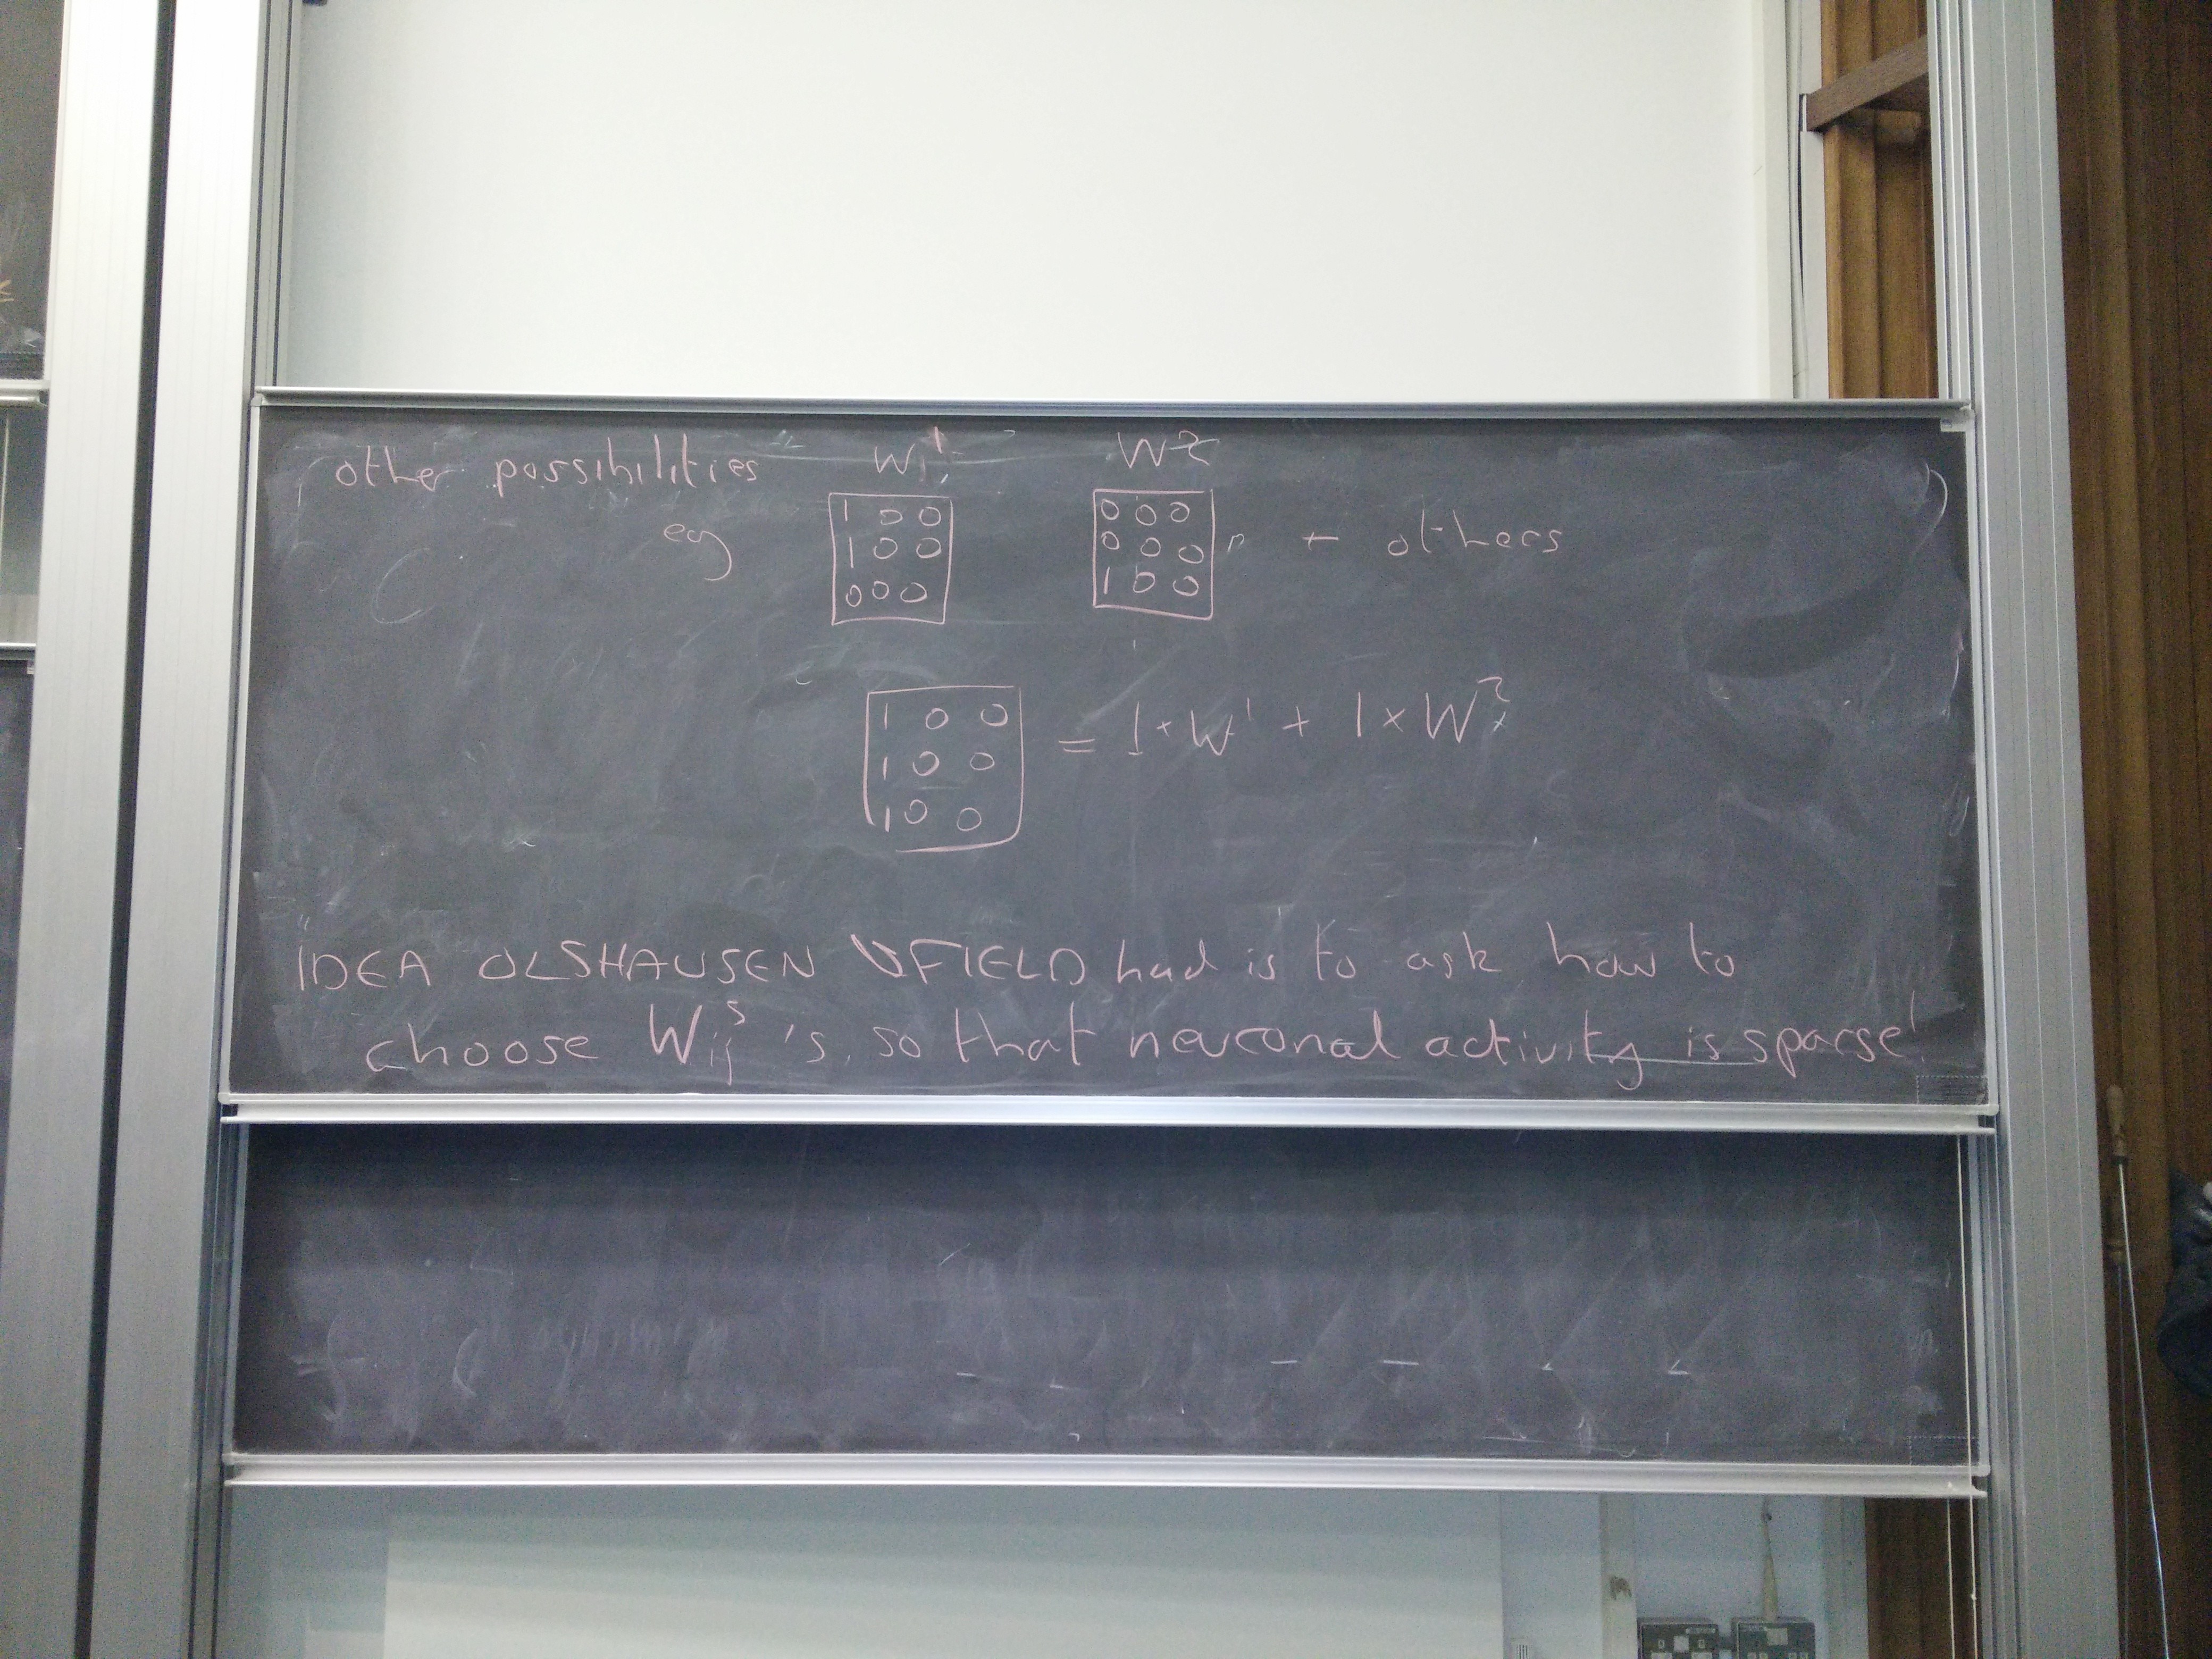 other possibilities W¹ W²
eg
1 0 0
1 0 0
0 0 0
0 0 0
0 0 0
1 0 0
+ others
1 0 0
1 0 0
1 0 0
= 1 × W¹ + 1 × W²
IDEA OLSHAUSEN FIELD had is to ask how to
choose Wᵢⱼˢ 's, so that neuronal activity is sparse!